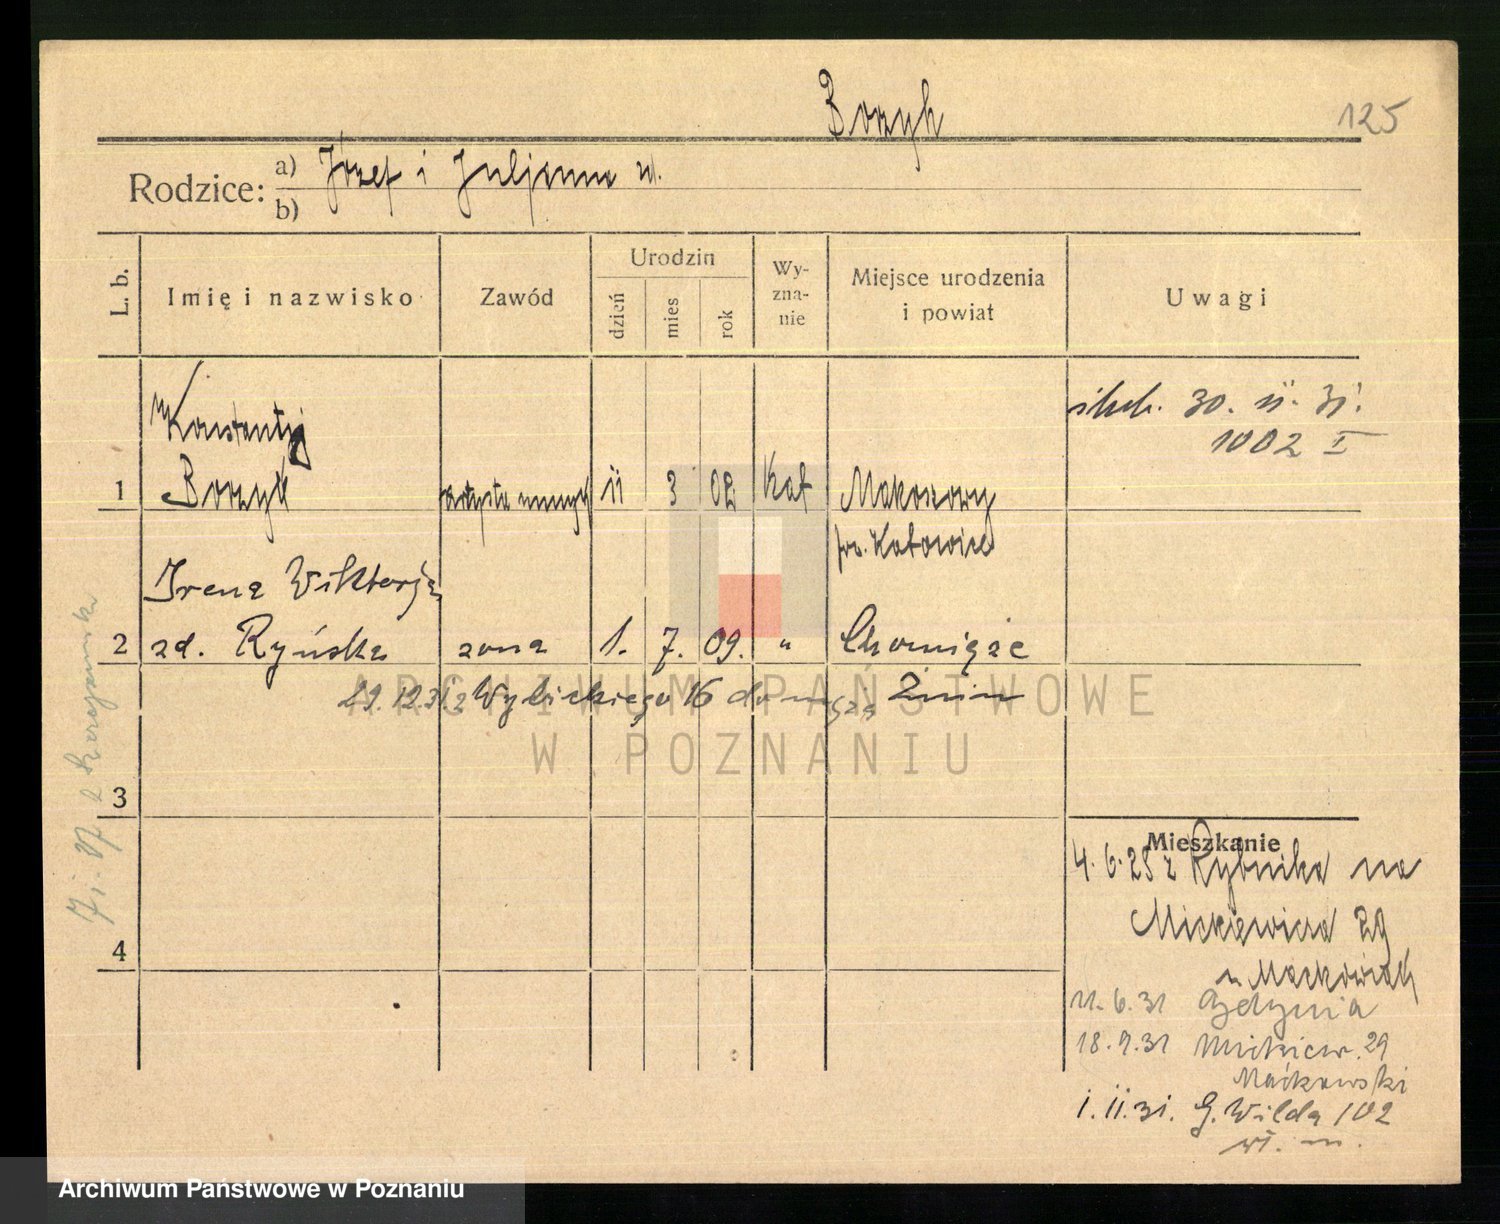 Borzyk
125
Rodzice: a) Józef i Juljanna
b)
L. b. Imię i nazwisko Zawód Urodzin dzień mies rok Wy-zna-nie Miejsce urodzenia i powiat Uwagi
30. 11. 31.
1002 I
Konstanty
1 Borzyk artysta muzyk 11 3 02 Kat Makoszowy
pw. Katowice
Irena Wiktorja
2 zd. Ryńska żona 1. 7. 09. " Chomiąże
29.12.31 z Wybickiego 16 do męża Żnin
3
4
Mieszkanie
4. 6. 25 z Rybnika na
Mickiewicza 29
u Maćkowiak
11. 6. 31 Gdynia
18. 9. 31 Mickiew. 29
Maćkowski
1. 11. 31. G. Wilda 102
wł. m.
ARCHIWUM PAŃSTWOWE
W POZNANIU
Archiwum Państwowe w Poznaniu